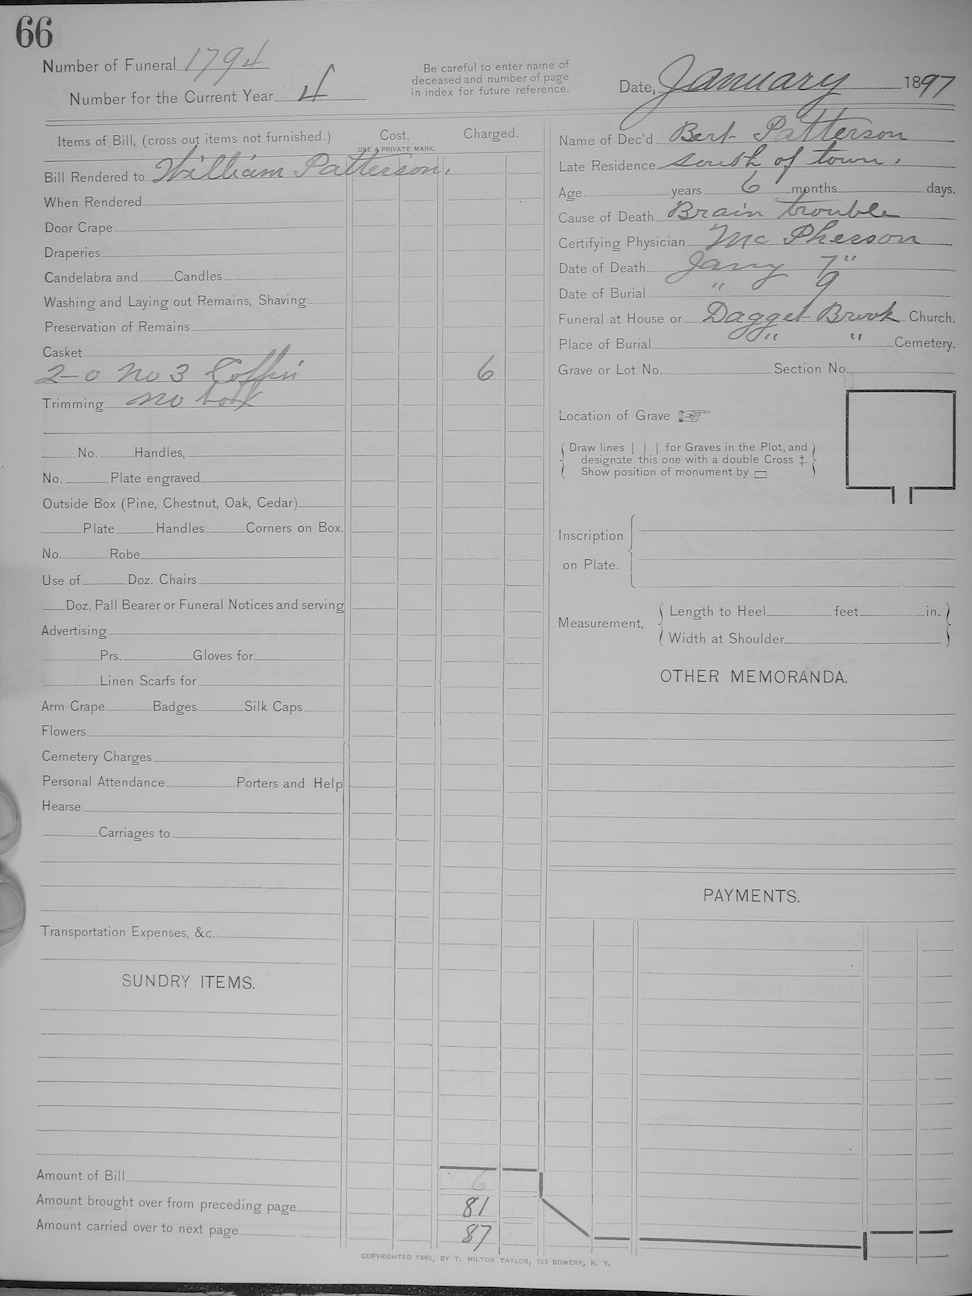 66
Number of Funeral 1794
Number for the Current Year 4
Be careful to enter name of
deceased and number of page
in index for future reference.
Date, January 1897
Items of Bill, (cross out items not furnished.) Cost. Charged.
USE A PRIVATE MARK.
Bill Rendered to William Patterson,
When Rendered
Door Crape
Draperies
Candelabra and Candles
Washing and Laying out Remains, Shaving
Preservation of Remains
Casket
2-0 No 3 Coffin 6
Trimming no box
No. Handles,
No. Plate engraved
Outside Box (Pine, Chestnut, Oak, Cedar)
Plate Handles Corners on Box.
No. Robe
Use of Doz. Chairs
Doz. Pall Bearer or Funeral Notices and serving
Advertising
Prs. Gloves for
Linen Scarfs for
Arm Crape Badges Silk Caps
Flowers
Cemetery Charges
Personal Attendance Porters and Help
Hearse
Carriages to
Transportation Expenses, &c.
SUNDRY ITEMS.
Amount of Bill 6
Amount brought over from preceding page 81
Amount carried over to next page 87
Name of Dec'd Bert Patterson
Late Residence south of town.
Age years 6 months days.
Cause of Death Brain trouble
Certifying Physician Mc Pherson
Date of Death Jany 7"
Date of Burial " 9
Funeral at House or Dagget Brook Church.
Place of Burial " " Cemetery.
Grave or Lot No. Section No.
Location of Grave ☞
Draw lines | | | for Graves in the Plot, and
designate this one with a double Cross ‡.
Show position of monument by ▭
Inscription
on Plate.
Measurement, Length to Heel feet in.
Width at Shoulder
OTHER MEMORANDA.
PAYMENTS.
COPYRIGHTED 1890, BY T. MILTON TAYLOR, 163 BOWERY, N. Y.